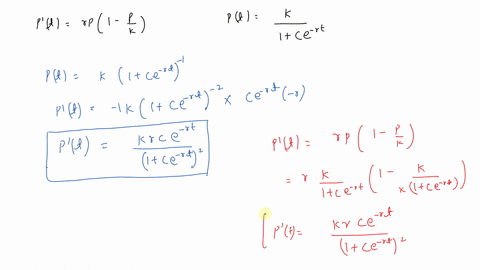 P'(t) = rP(1 - P/K)
P(t) = K / (1 + Ce^{-rt})
P(t) = K (1 + Ce^{-rt})^{-1}
P'(t) = -1K (1 + Ce^{-rt})^{-2} × Ce^{-rt} (-r)
P'(t) = K r C e^{-rt} / (1 + Ce^{-rt})^2
P'(t) = rP (1 - P/K)
= r K / (1 + Ce^{-rt}) (1 - K / (K(1 + Ce^{-rt})))
P'(t) = K r C e^{-rt} / (1 + Ce^{-rt})^2